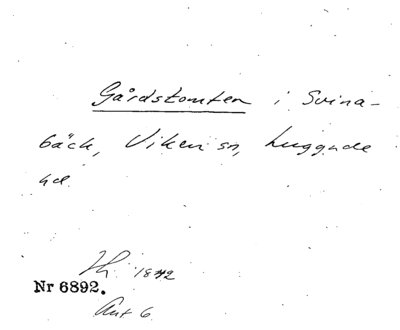 Gårdstomten i Svina-
bäck, Viken sn, Luggude
hd.
1842
Nr 6892.
Ant 6